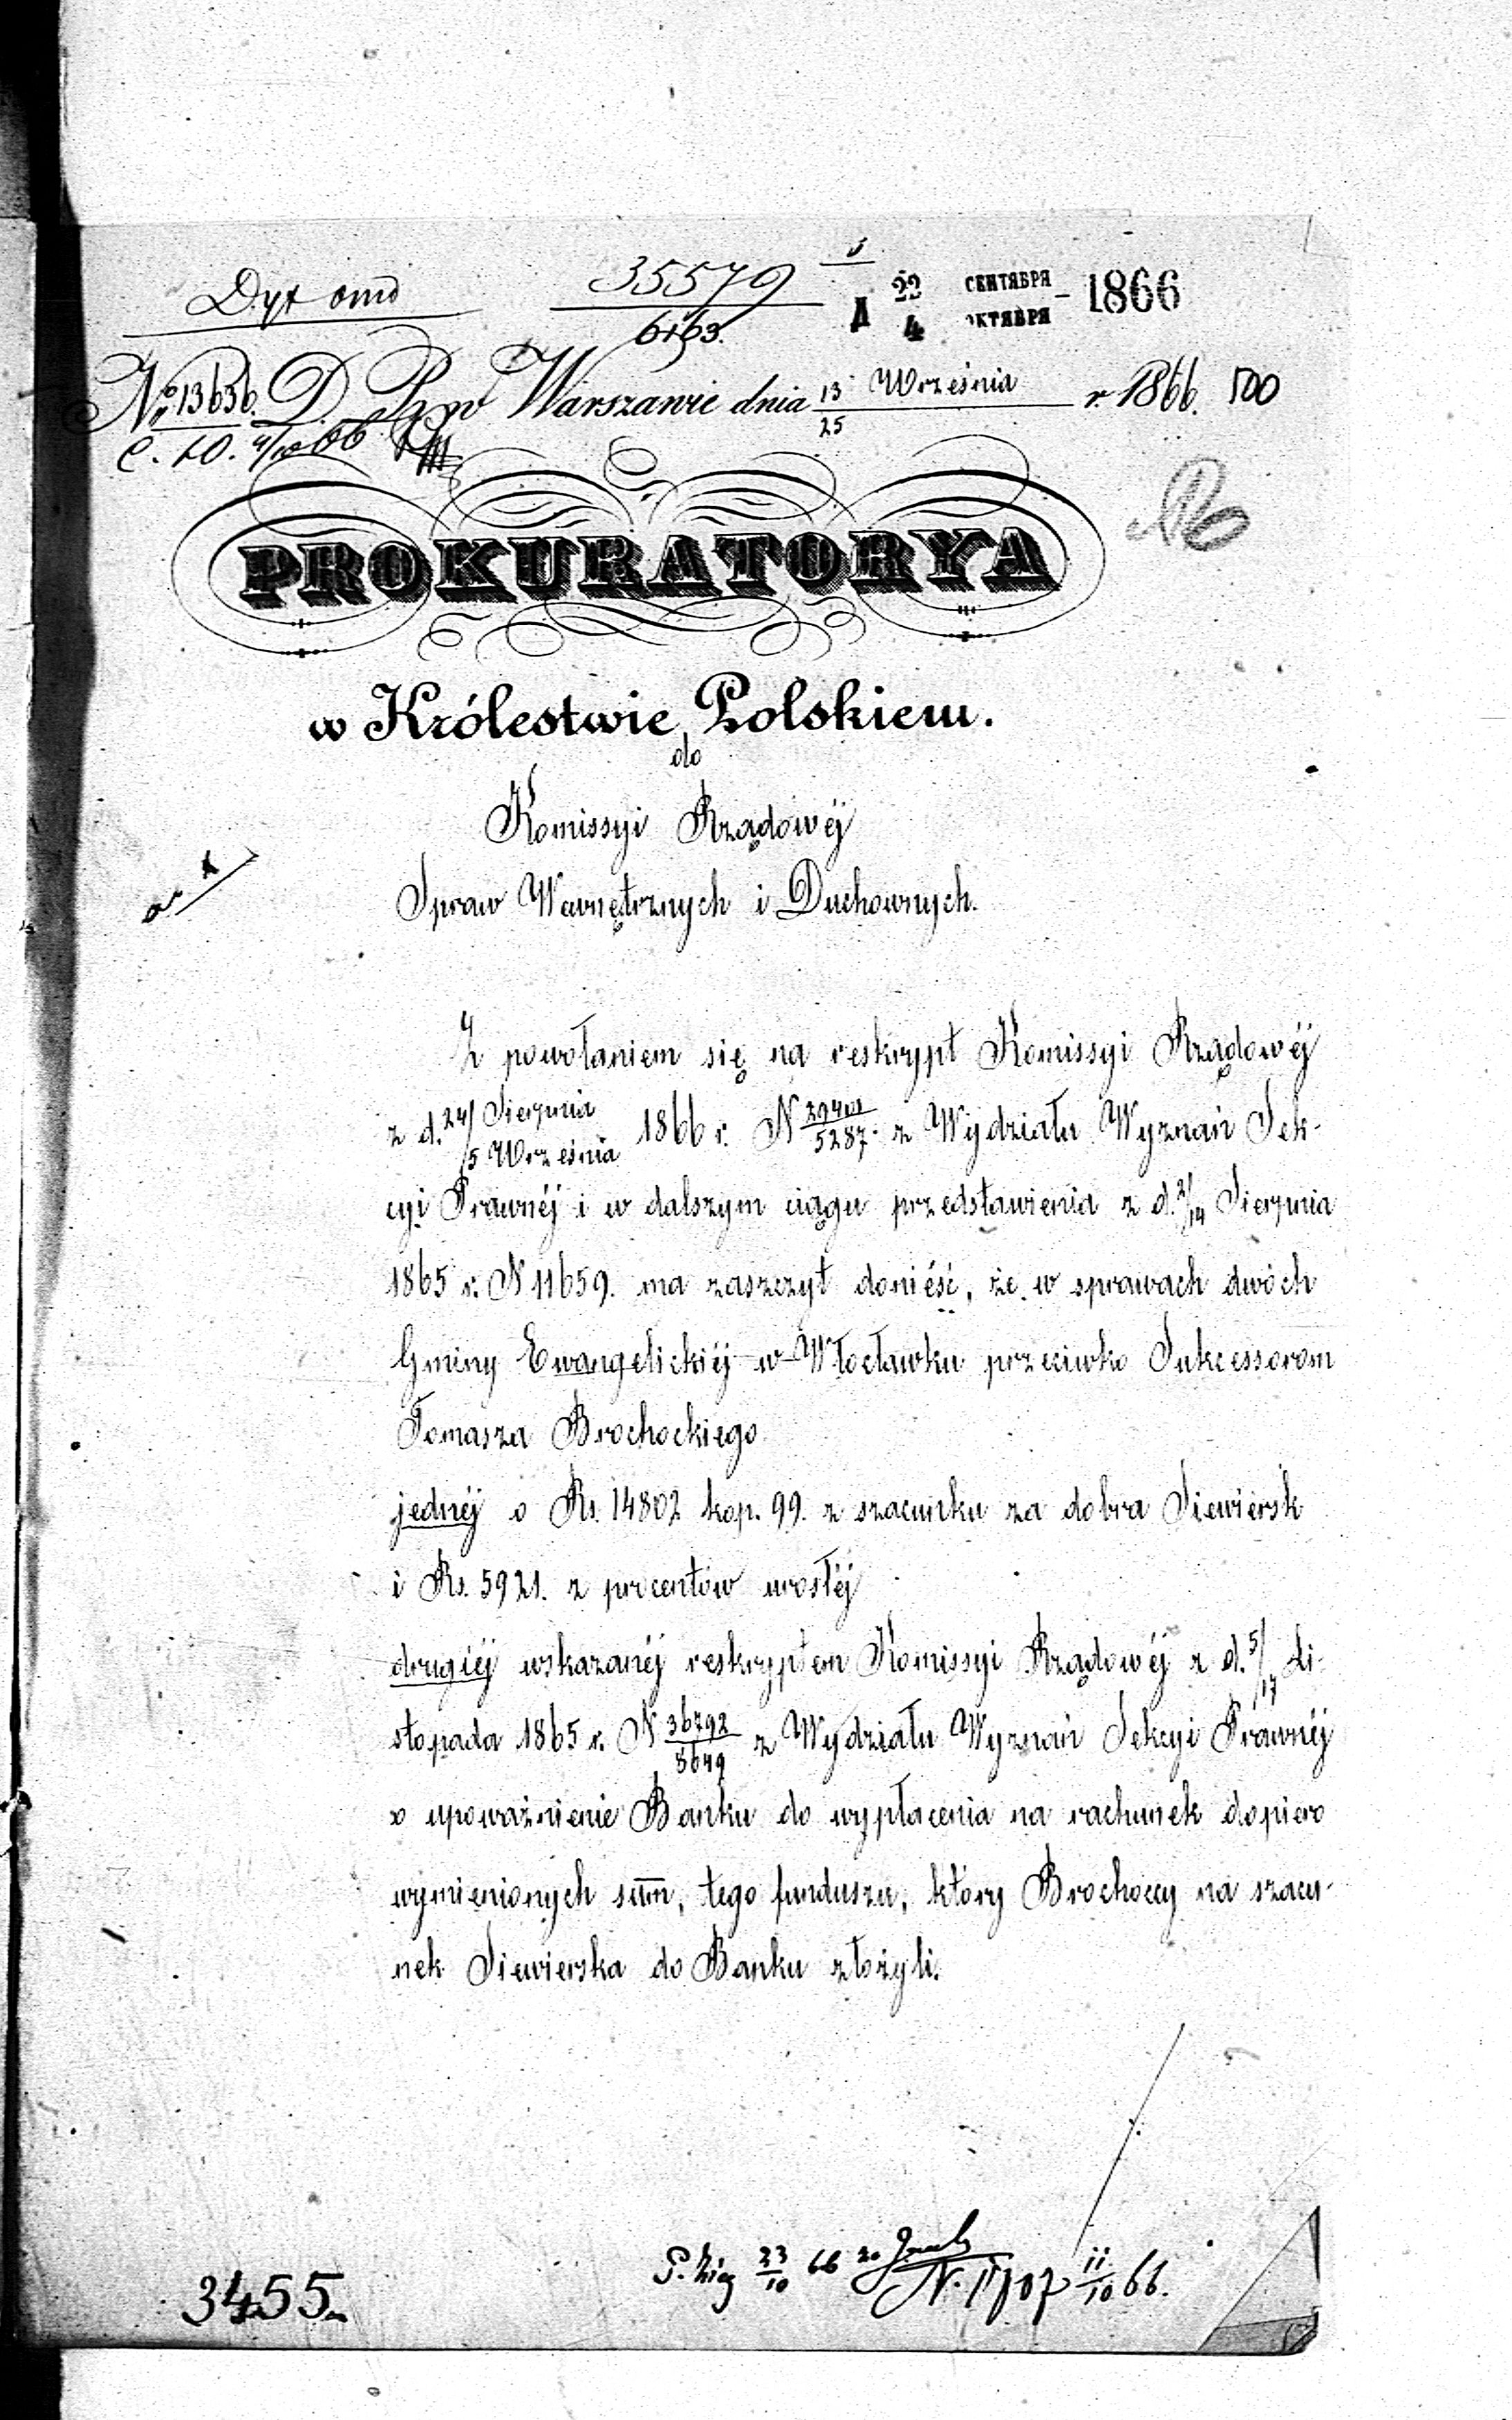 35579
6163.
Д 22 СЕНТЯБРЯ
4 ОКТЯБРЯ - 1866
No 13636. D. P. w Warszawie dnia 13/25 Września r. 1866. 500
PROKURATORYA
w Królestwie Polskiem.
do
Komissyi Rządowéj
Spraw Wewnętrznych i Duchownych.
Z powołaniem się na reskrypt Komissyi Rządowéj
z d. 24/ Sierpnia /5 Września 1866 r. N /5287. z Wydziału Wyznań Sek-
cyi Prawnéj i w dalszym ciągu przedstawienia z d. 2/14 Sierpnia
1865 r. N 11659. ma zaszczyt donieść, że w sprawach dwóch
Gminy Ewangelickiéj w Włocławku przeciwko Sukcessorom
Tomasza Brochockiego
jednéj o Rs. 14802 kop. 99. z szacunku za dobra Siewiersk
i Rs. 5921. z procentów urosłéj
drugiéj wskazanéj reskryptem Komissyi Rządowéj z d. 5/17 Li-
stopada 1865 r. N 36792/8649 z Wydziału Wyznań Sekcyi Prawnéj
o upoważnienie Banku do wypłacenia na rachunek dopiero
wymienionych summ, tego funduszu, który Brochoccy na szacu-
nek Siewierska do Banku złożyli.
23/10 66
11/10 66.
3455